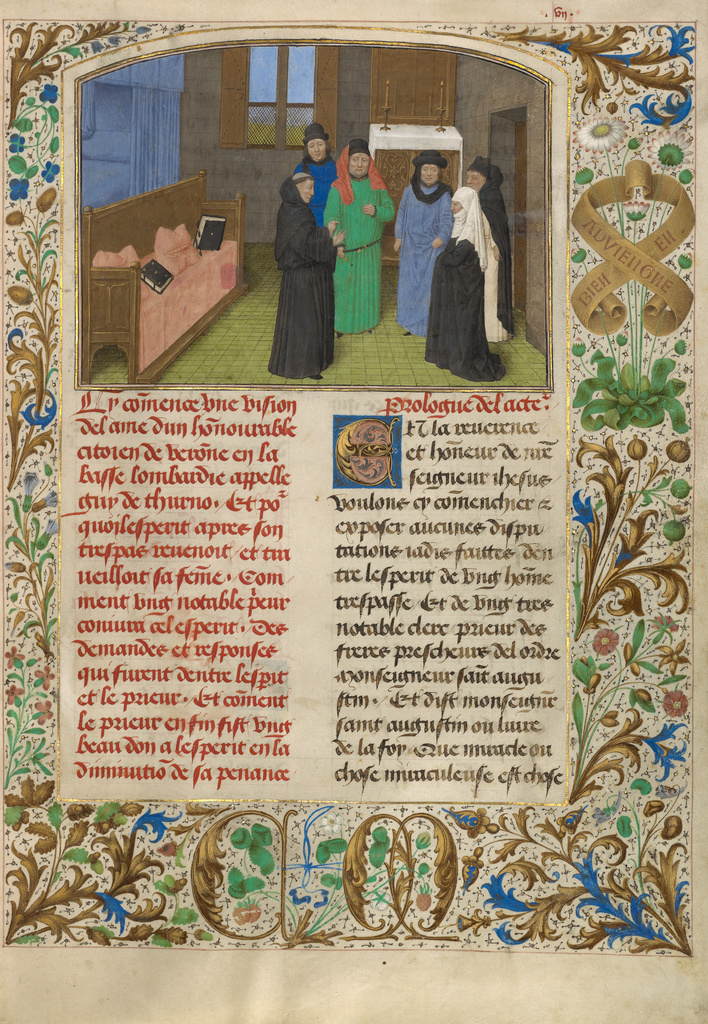 .vij.
BIEN EN
ADVIENGNE
Cy cõmence vne vision
del ame dun hõnourable
citoien de verõne en la
basse lombardie appelle
guy de thurno. Et po᷑
quoi lesperit apres son
trespas reuenoit et tra
ueilloit sa fẽme. Com
ment vng notable p̃eur
coniura cel esperit. Des
demandes et responses
qui furent dentre lesp̃it
et le prieur. Et cõment
le prieur en fin fist vng
beau don a lesperit en la
diminutiõ de sa penance
Prologue del acte᷑
Et la reuerence
et hõneur de nr̃e
seigneur ihesus
voulons cy cõmenchier ⁊
exposer aucunes dispu
tations iadis faittes den
tre lesperit de vng hõme
trespasse Et de vng tres
notable clerc prieur des
freres prescheurs del ordre
monseigneur saĩt augu
stin. Et dist monseign᷑r
saint augustin ou liure
de la foy. Que miracle ou
chose miraculeuse est chose
C M